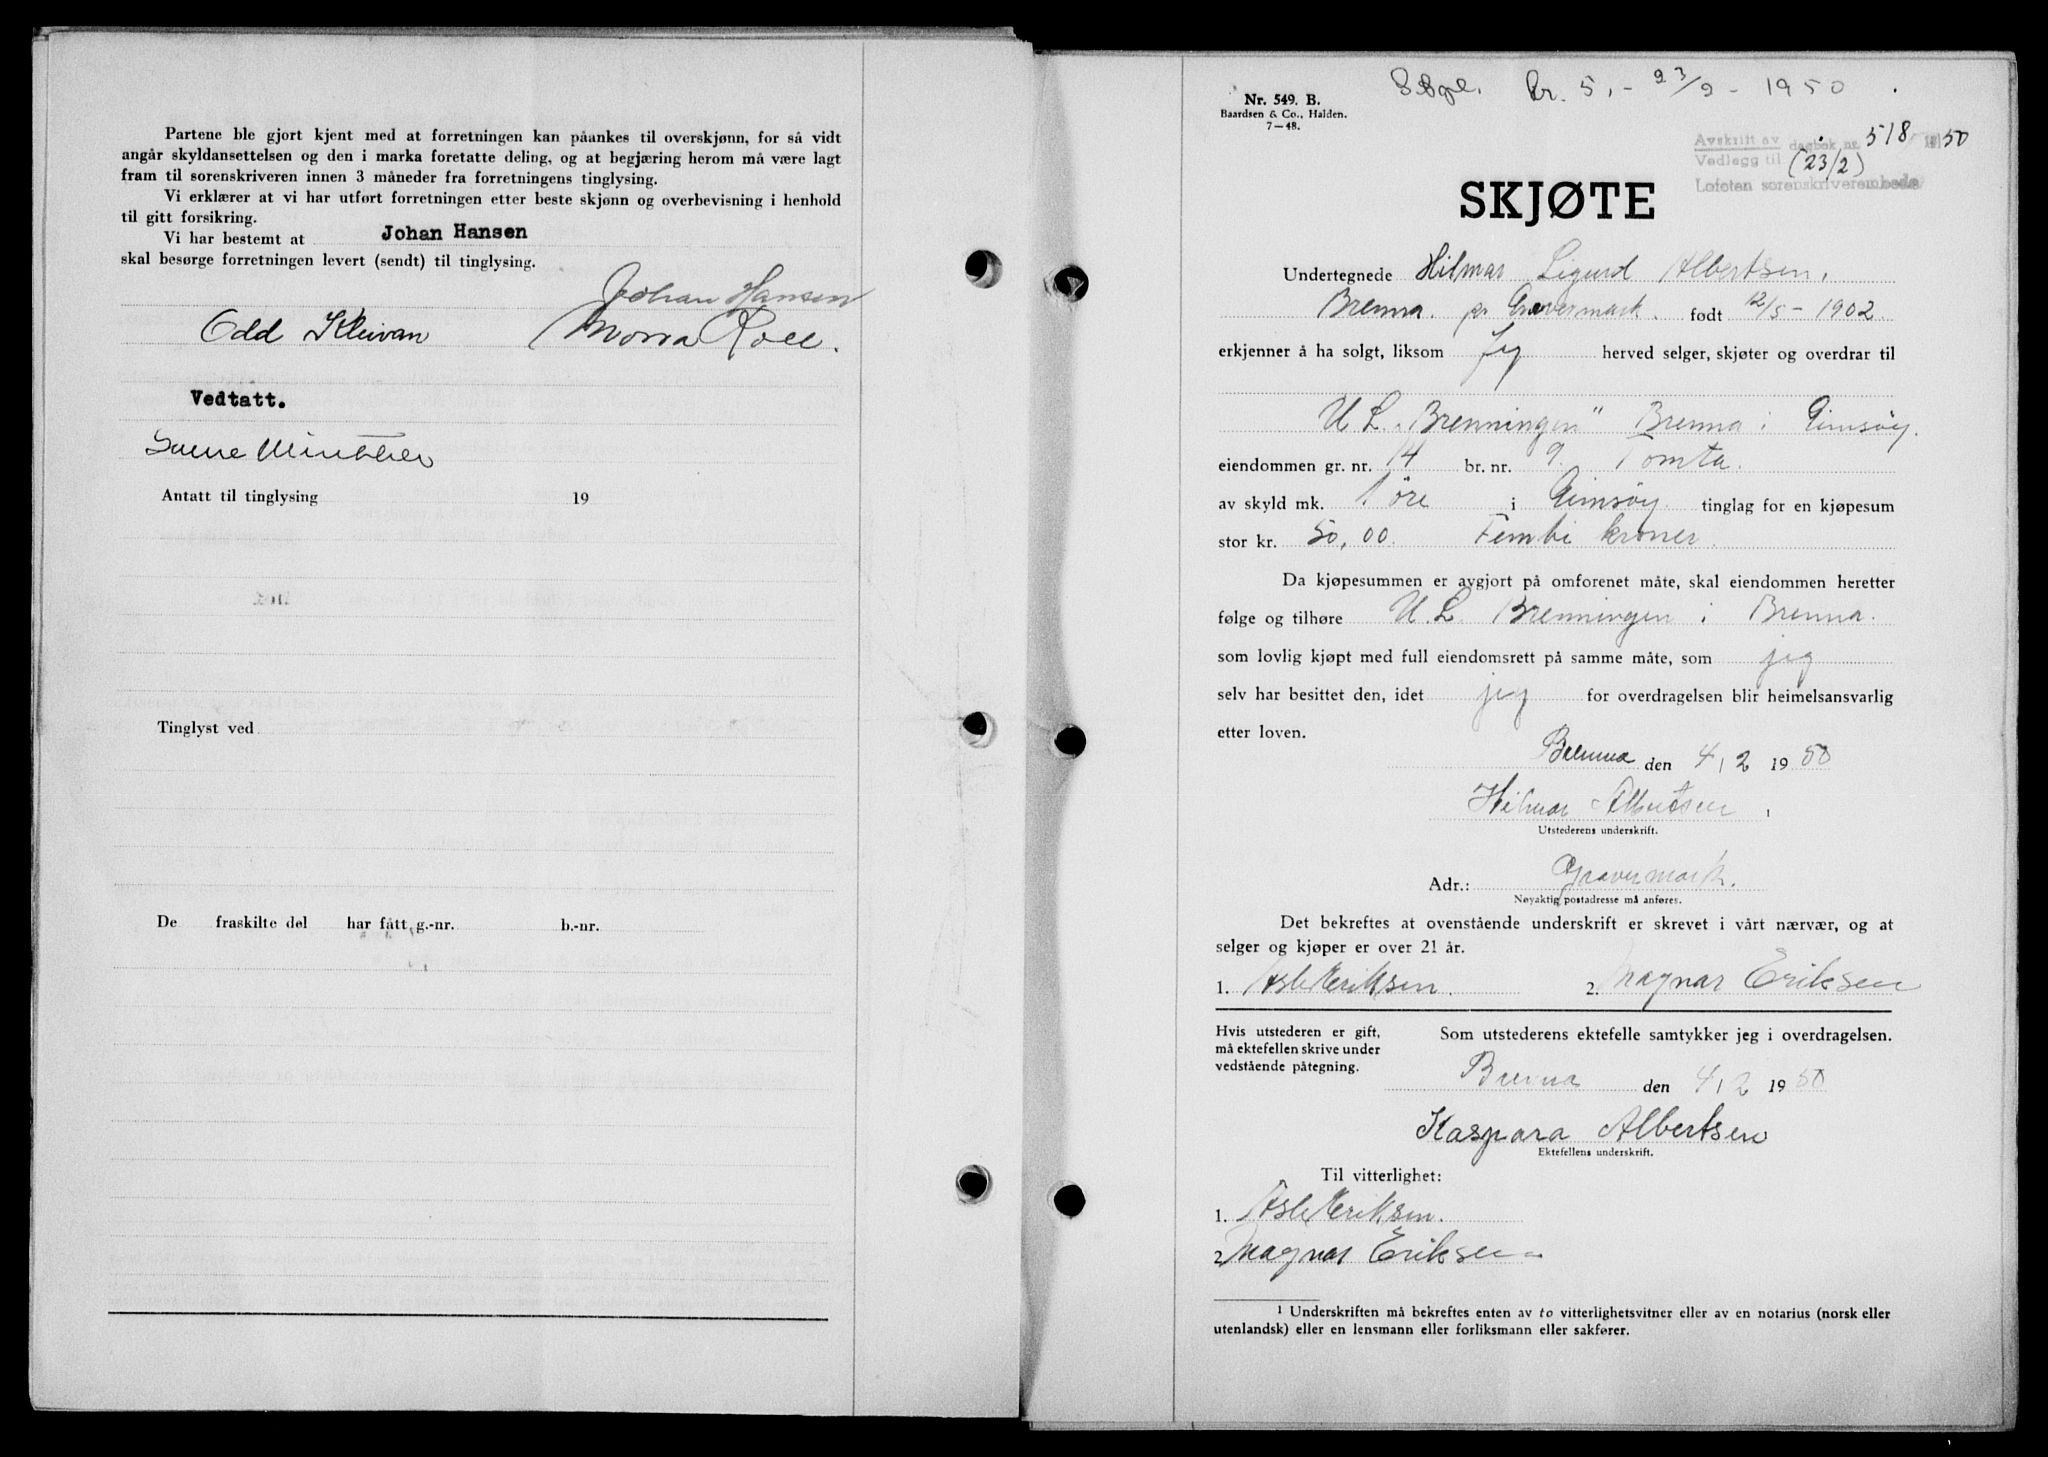 Partene ble gjort kjent med at forretningen kan påankes til overskjønn, for så vidt
angår skyldansettelsen og den i marka foretatte deling, og at begjæring herom må være lagt
fram til sorenskriveren innen 3 måneder fra forretningens tinglysing.
Vi erklærer at vi har utført forretningen etter beste skjønn og overbevisning i henhold
til gitt forsikring.
Vi har bestemt at Johan Hansen
skal besørge forretningen levert (sendt) til tinglysing.
Johan Hansen
Odd Kleivan
Vedtatt.
Antatt til tinglysing 19
Tinglyst ved
De fraskilte del har fått g.-nr. b.-nr.
kr. 5,- 23/2 - 1950
Nr. 549. B.
Baardsen & Co., Halden.
7—48.
Avskrift av dagbok nr. 518 1950
Vedlegg til (23/2)
Lofoten sorenskriverembede
SKJØTE
Undertegnede Hilmar Sigurd Albertsen,
Brenna. pr Gravermark. født 12/5 - 1902
erkjenner å ha solgt, liksom Jeg herved selger, skjøter og overdrar til
U L „Brenningen" Brenna i Gimsøy.
eiendommen gr. nr. 14 br. nr. 9 Tomta.
av skyld mk. 1 øre i Gimsøy tinglag for en kjøpesum
stor kr. 50,00. Femti kroner.
Da kjøpesummen er avgjort på omforenet måte, skal eiendommen heretter
følge og tilhøre U.L. Brenningen i Brenna.
som lovlig kjøpt med full eiendomsrett på samme måte, som jeg
selv har besittet den, idet jeg for overdragelsen blir heimelsansvarlig
etter loven.
Brenna den 4/2 1950
Hilmar Albertsen
Utstederens underskrift.
Adr.: Gravermark.
Nøyaktig postadresse må anføres.
Det bekreftes at ovenstående underskrift er skrevet i vårt nærvær, og at
selger og kjøper er over 21 år.
1. Asle Eriksen. 2. Magnar Eriksen
Hvis utstederen er gift,
må ektefellen skrive under
vedstående påtegning.
Som utstederens ektefelle samtykker jeg i overdragelsen.
Brenna den 4/2 1950
Kaspara Albertsen
Ektefellens underskrift.
Til vitterlighet:
1. Asle Eriksen.
2 Magnar Eriksen
1 Underskriften må bekreftes enten av to vitterlighetsvitner eller av en notarius (norsk eller
utenlandsk) eller en lensmann eller forliksmann eller sakfører.